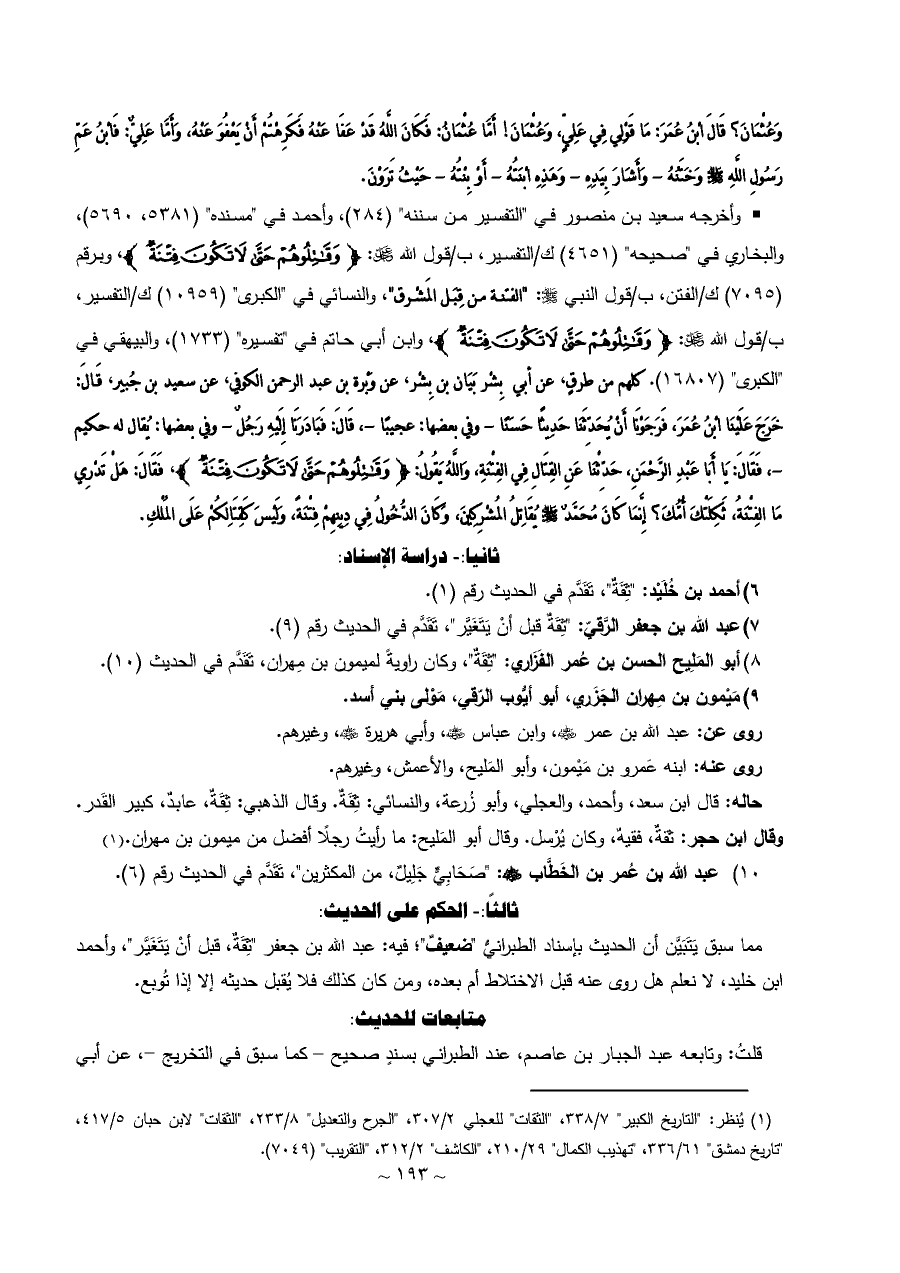 وَعُثْمَانَ؟ قَالَ ابْنُ عُمَرَ: مَا قَوْلِي فِي عَلِيٍّ، وَعُثْمَانَ! أَمَّا عُثْمَانُ: فَكَانَ اللَّهُ قَدْ عَفَا عَنْهُ فَكَرِهْتُمْ أَنْ يَعْفُوَ عَنْهُ، وَأَمَّا عَلِيٌّ: فَابْنُ عَمِّ
رَسُولِ اللَّهِ ﷺ وَخَتَنُهُ – وَأَشَارَ بِيَدِهِ – وَهَذِهِ ابْنَتُهُ – أَوْ بِنْتُهُ – حَيْثُ تَرَوْنَ.
▪ وأخرجه سعيد بن منصور في "التفسير من سننه" (٢٨٤)، وأحمد في "مسنده" (٥٣٨١، ٥٦٩٠)،
والبخاري في "صحيحه" (٤٦٥١) ك/التفسير، ب/قول الله ﷻ: ﴿ وَقَٰتِلُوهُمْ حَتَّىٰ لَا تَكُونَ فِتْنَةٌ ﴾، وبرقم
(٧٠٩٥) ك/الفتن، ب/قول النبي ﷺ: "الفتنة من قِبَل المَشرق"، والنسائي في "الكبرى" (١٠٩٥٩) ك/التفسير،
ب/قول الله ﷻ: ﴿ وَقَٰتِلُوهُمْ حَتَّىٰ لَا تَكُونَ فِتْنَةٌ ﴾، وابن أبي حاتم في "تفسيره" (١٧٣٣)، والبيهقي في
"الكبرى" (١٦٨٠٧). كلهم من طرقٍ، عن أبي بِشْر بَيَان بن بِشْر، عن وَبْرة بن عبد الرحمن الكوفي، عن سعيد بن جُبير، قَالَ:
خَرَجَ عَلَيْنَا ابْنُ عُمَرَ، فَرَجَوْنَا أَنْ يُحَدِّثَنَا حَدِيثًا حَسَنًا – وفي بعضها: عجيبًا –، قَالَ: فَبَادَرَنَا إِلَيْهِ رَجُلٌ – وفي بعضها: يُقال له حكيم
–، فَقَالَ: يَا أَبَا عَبْدِ الرَّحْمَنِ، حَدِّثْنَا عَنِ القِتَالِ فِي الفِتْنَةِ، وَاللَّهُ يَقُولُ: ﴿ وَقَٰتِلُوهُمْ حَتَّىٰ لَا تَكُونَ فِتْنَةٌ ﴾، فَقَالَ: هَلْ تَدْرِي
مَا الفِتْنَةُ، ثَكِلَتْكَ أُمُّكَ؟ إِنَّمَا كَانَ مُحَمَّدٌ ﷺ يُقَاتِلُ المُشْرِكِينَ، وَكَانَ الدُّخُولُ فِي دِينِهِمْ فِتْنَةً، وَلَيْسَ كَقِتَالِكُمْ عَلَى المُلْكِ.
ثانيا:- دراسة الإسناد:
٦) أحمد بن خُلَيْد: "ثِقَةٌ"، تَقَدَّم في الحديث رقم (١).
٧) عبد الله بن جعفر الرَّقيّ: "ثِقَةٌ قبل أنْ يَتَغَيَّر"، تَقَدَّم في الحديث رقم (٩).
٨) أبو المَليح الحسن بن عُمر الفَزَاري: "ثِقَةٌ"، وكان راويةً لميمون بن مِهران، تَقَدَّم في الحديث (١٠).
٩) مَيْمون بن مِهران الجَزَري، أبو أيُّوب الرّقي، مَوْلى بني أسد.
روى عن: عبد الله بن عمر ﷺ، وابن عباس ﷺ، وأبي هريرة ﷺ، وغيرهم.
روى عنه: ابنه عَمرو بن مَيْمون، وأبو المَليح، والأعمش، وغيرهم.
حاله: قال ابن سعد، وأحمد، والعجلي، وأبو زُرعة، والنسائي: ثِقَةٌ. وقال الذهبي: ثِقَةٌ، عابدٌ، كبير القَدر.
وقال ابن حجر: ثَقَةٌ، فقيهٌ، وكان يُرْسل. وقال أبو المَليح: ما رأيتُ رجلًا أفضل من ميمون بن مهران.(١)
١٠) عبد الله بن عُمر بن الخَطَّاب ﷺ: "صَحَابِيٌّ جَلِيلٌ، من المكثرين"، تَقَدَّم في الحديث رقم (٦).
ثالثاً:- الحكم على الحديث:
مما سبق يَتَبَيَّن أن الحديث بإسناد الطبرانيُّ "ضعيفٌ"؛ فيه: عبد الله بن جعفر "ثِقَةٌ، قبل أنْ يَتَغَيَّر"، وأحمد
ابن خليد، لا نعلم هل روى عنه قبل الاختلاط أم بعده، ومن كان كذلك فلا يُقبل حديثه إلا إذا تُوبع.
متابعات للحديث:
قلتُ: وتابعه عبد الجبار بن عاصم، عند الطبراني بسندٍ صحيح – كما سبق في التخريج –، عن أبي
(١) يُنظر: "التاريخ الكبير" ٣٣٨/٧، "الثقات" للعجلي ٣٠٧/٢، "الجرح والتعديل" ٢٣٣/٨، "الثقات" لابن حبان ٤١٧/٥،
"تاريخ دمشق" ٣٣٦/٦١، "تهذيب الكمال" ٢١٠/٢٩، "الكاشف" ٣١٢/٢، "التقريب" (٧٠٤٩).
~ ١٩٣ ~